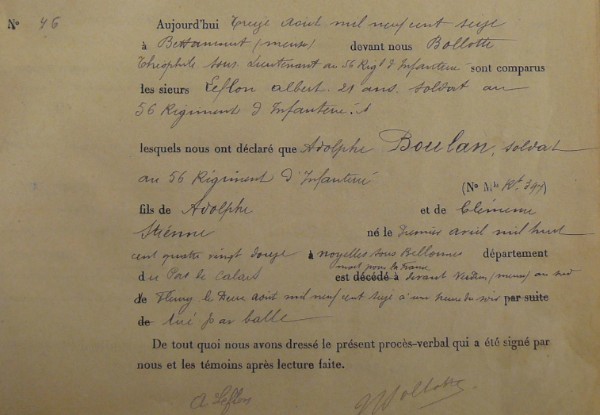 N° 46
Aujourd'hui treize Août mil neuf cent seize
à (meuse) devant nous Bollotte
Théophile sous Lieutenant au 56 Rigt d'Infanterie sont comparus
les sieurs Leflon albert. 21 ans. soldat au
56 Rigiment d'Infanterie.
lesquels nous ont déclaré que Adolphe Boulan, soldat
au 56 Rigiment d'Infanterie
(N° Mle
fils de Adolphe et de Clémence
né le Premier avril mil huit
cent quatre vingt douze à noyelles sous Bellonne département
du Pas de Calais mort pour la France
est décédé à devant Verdun (meuse) au nord
de Fleury le Deux août mil neuf cent seize à une heure du soir par suite
de tué par balle
De tout quoi nous avons dressé le présent procès-verbal qui a été signé par
nous et les témoins après lecture faite.
A Leflon Bollotte